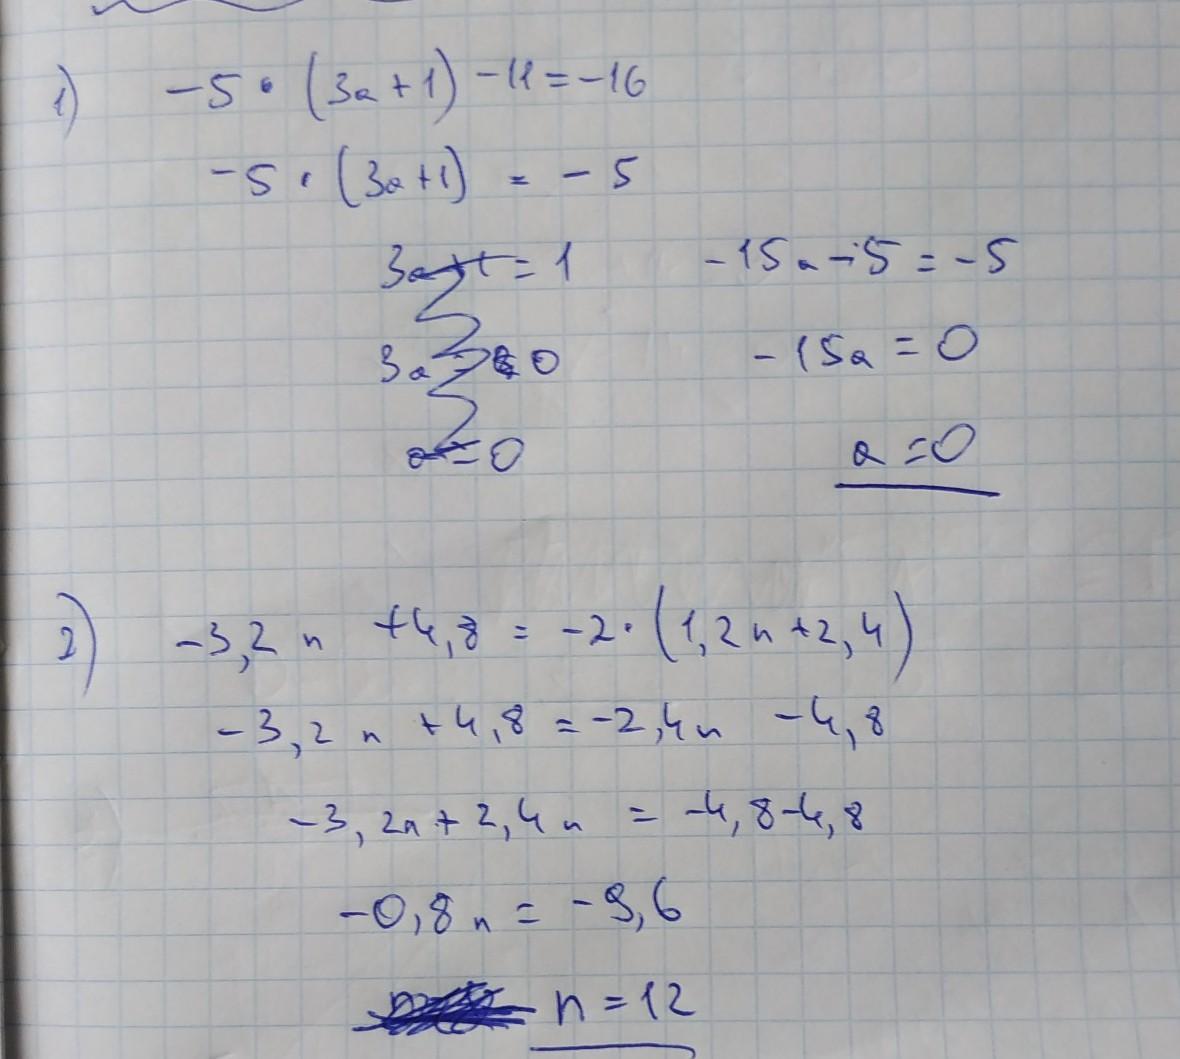 1) -5 • (3a+1) -11 = -16
-5 · (3a+1) = -5
3a+1 = 1 -15a-5 = -5
3a = 0 -15a = 0
a = 0 a = 0
2) -3,2n +4,8 = -2·(1,2n+2,4)
-3,2n +4,8 = -2,4n -4,8
-3,2n+2,4n = -4,8-4,8
-0,8n = -9,6
n = 12